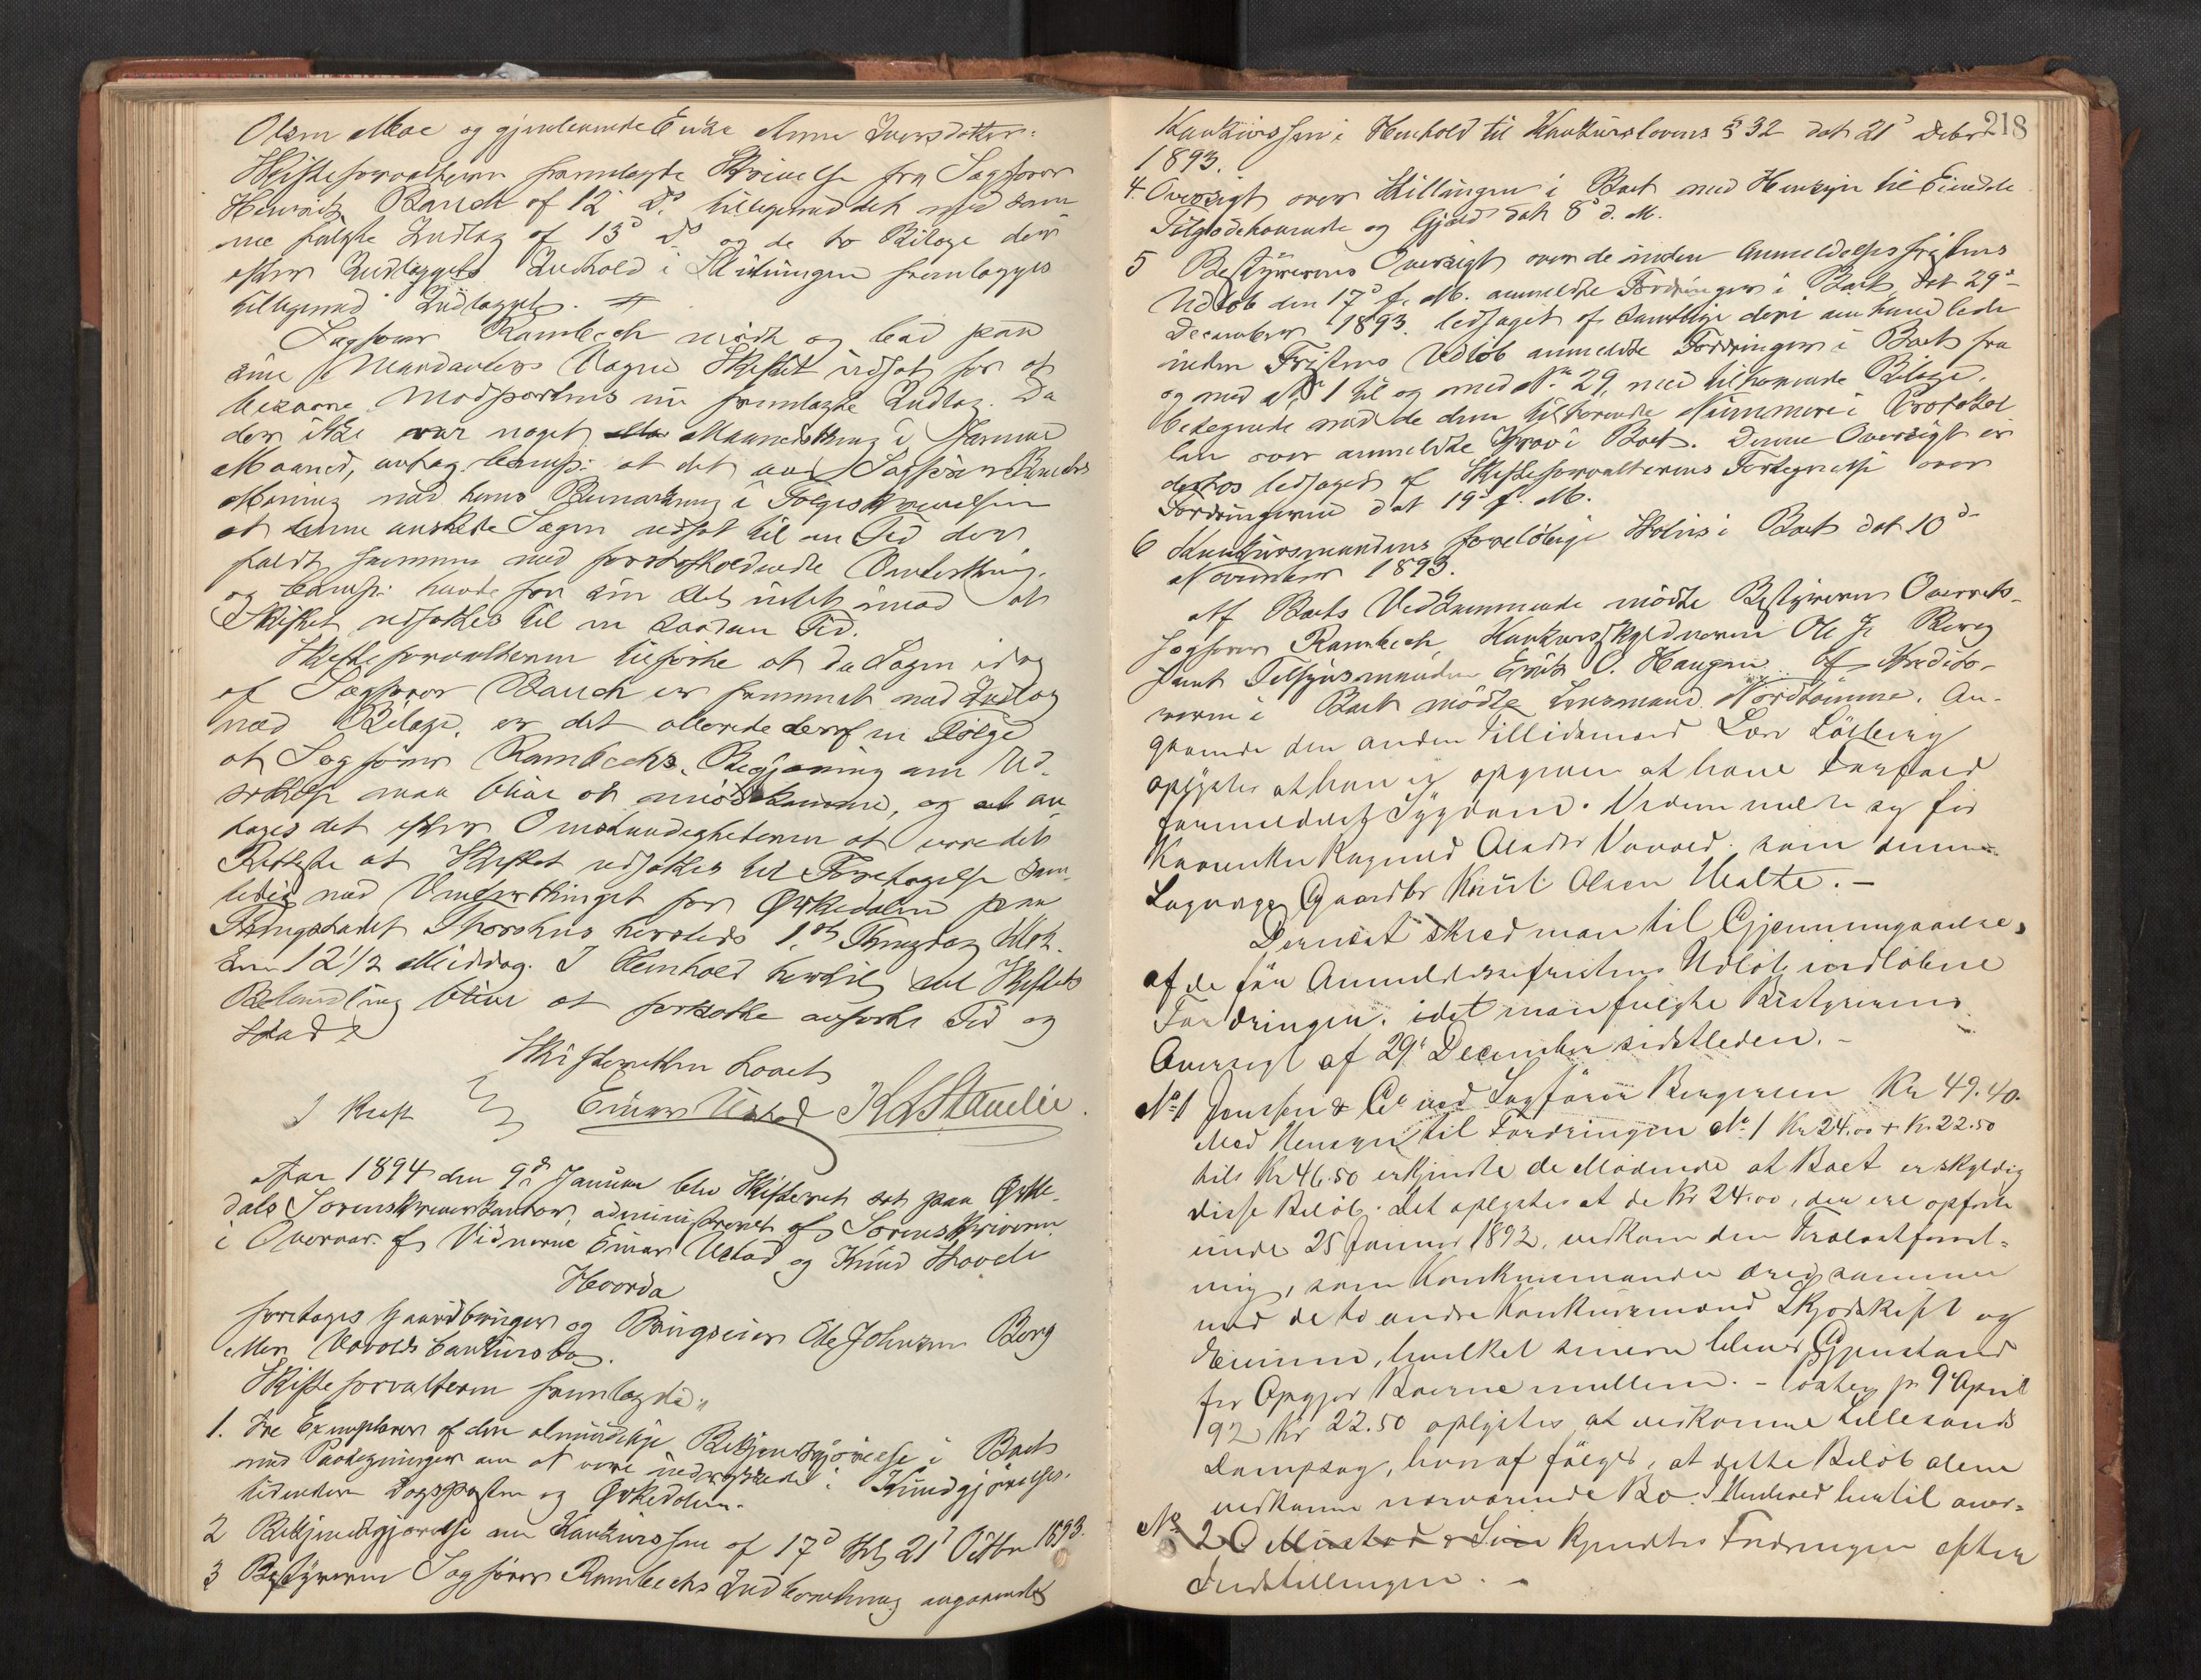 Olsen Moe og gjenlevende Enke Anne Iversdatter:
Skifteforvalteren fremlagde Skrivelse fra Sagfører
Henrik Bauck af 12 ds. tilligemed det med sam
me fulgte Indlæg af 13d ds og de to Bilage der
efter Indlæggets Indhold i Slutningen fremlægges
tilligemed Indlægget. #
Sagfører Rambech mødte og bad paa
sine Mandanters Vegne Skiftet udsat for at
besvare Modpartens nu fremlagte Indlæg. Da
der ikke var noget Maanedsthing i Januar
Maaned, antog Comp: at det var Sagfører Baucks
Mening med hans Bemærkning i Følgeskrivelsen
at denne ønskede Sagen udsat til en Tid der
faldt sammen med forestaaende Vinterthing,
og Comp: havde for sin Del intet imod at
Skiftet udsættes til en saadan Tid.
Skifteforvalteren tilførte at da Sagen idag
af Sagfører Bauck er fremmet med Indlæg
med Bilage, er det allerede deraf en Følge
at Sagfører Rambechs Begjæring om Ud-
sættelse maa blive at imødekomme, og an
tages det efter Omstændighederne at være det
Retteste at Skiftet udsættes til Foretagelse sam-
tidig med Vinterthinget for Ørkedalen paa
Thingstedet Thorshus hersteds 1ste Thingdag Klok-
ken 12 1/2 Middag. I Henhold hertil vil Skiftets
Behandling blive at fortsætte anførte Tid og
Sted.
Skifteretten hævet
I Kraft Einar Ustad
Aar 1894 den 9de Januar blev Skifteret sat paa Ørke-
dals Sorenskriverkontor, administreret af Sorenskriveren
i Overvær af Vidnerne Einar Ustad og Knud Hovde
Hvorda
foretoges Gaardbruger og Brugseier Ole Johnsen Berg
Mer. Vavolds Concursbo.
Skifteforvalteren fremlagde:
1. Tre Exemplarer af den almindelige Bekjendtgjørelse i Boet
med Paategninger om at være indrykkede i Kundgjørelses-
tidenden Dagsposten og Ørkedølen.
2 Bekjendtgjørelse om Konkursen af 17d 21d Oktbr 1893.
3 Bestyreren Sagfører Rambechs Indberetning angaaende
218
Konkursen i Henhold til Konkurslovens § 32 dat 21d Debr
1893.
4. Oversigt over Stillingen i Boet med Hensyn til Eiendele
Tilgodehavende og Gjæld dat 8d d. M.
5 Bestyrerens Oversigt over de inden Anmeldelsesfristens
Udløb den 17d f. M. anmeldte Fordringer i Boet dat 29d
December 1893. ledsaget af samtlige deri omhandlede
inden Fristens Udløb anmeldte Fordringer i Boet fra
og med No 1 til og med No. 29, med tilhørende Bilage.
betegnede med de dem tilhørende Nummere i Protokol
len over anmeldte Krav i Boet. Denne Oversigt er
derhos ledsaget af Skifteforvalterens Fortegnelse over
Fordringerne dat 19d f. M.
6 Konkursmandens foreløbige Status i Boet dat 10d
November 1893.
Af Boets Vedkommende mødte Bestyreren Overrets-
sagfører Rambech, Konkursskyldneren Ole J. Berg
samt Tilsynsmanden Erik O. Haugen. Af Kredito-
rerne i Boet mødte Lensmand Nordtømme. An-
gaaende den anden Tillidsmand Lars Løkberg
oplystes at han er opgiven at have Forfald
formedelst Sygdom. Videre meldte sig for
Kaarenke Ragnild Olsdtr Vavold som dennes
Lagværge Gaardbr Knut Olsen Uvaltr. —
Dernæst skred man til Gjennemgaaelse
af de før Anmeldelsesfristens Udløb indløbne
Fordringer, idet man fulgte Bestyrerens
Oversigt af 29d December sidstleden. —
No 1 Jenssen & Co ved Sagfører Bergersen Kr 49.40.
Med Hensyn til Fordringen No 1 Kr 24.00 + Kr. 22.50
tils Kr 46.50 erkjendte de Mødende at Boet er skyldig
disse Beløb. Det oplystes at de Kr 24.00, der ere opførte
under 25 Januar 1892, vedkom den Trælastforret-
ning, som Konkursmanden drev sammen
med de to andre Konkursmænd Skjødskift og
Heimen, hvilket senere bliver Gjenstand
for Opgjør Boerne mellem. — Posten pr 9d April
92 Kr 22.50 oplystes at vedkomme Lillesands
Dampsag, hvoraf følger, at dette Beløb alene
vedkomme nærværende Bo. I Henhold hertil aner-
No 2 O Mustad & Søn kjendtes Fordringen efter
Indstillingen. —